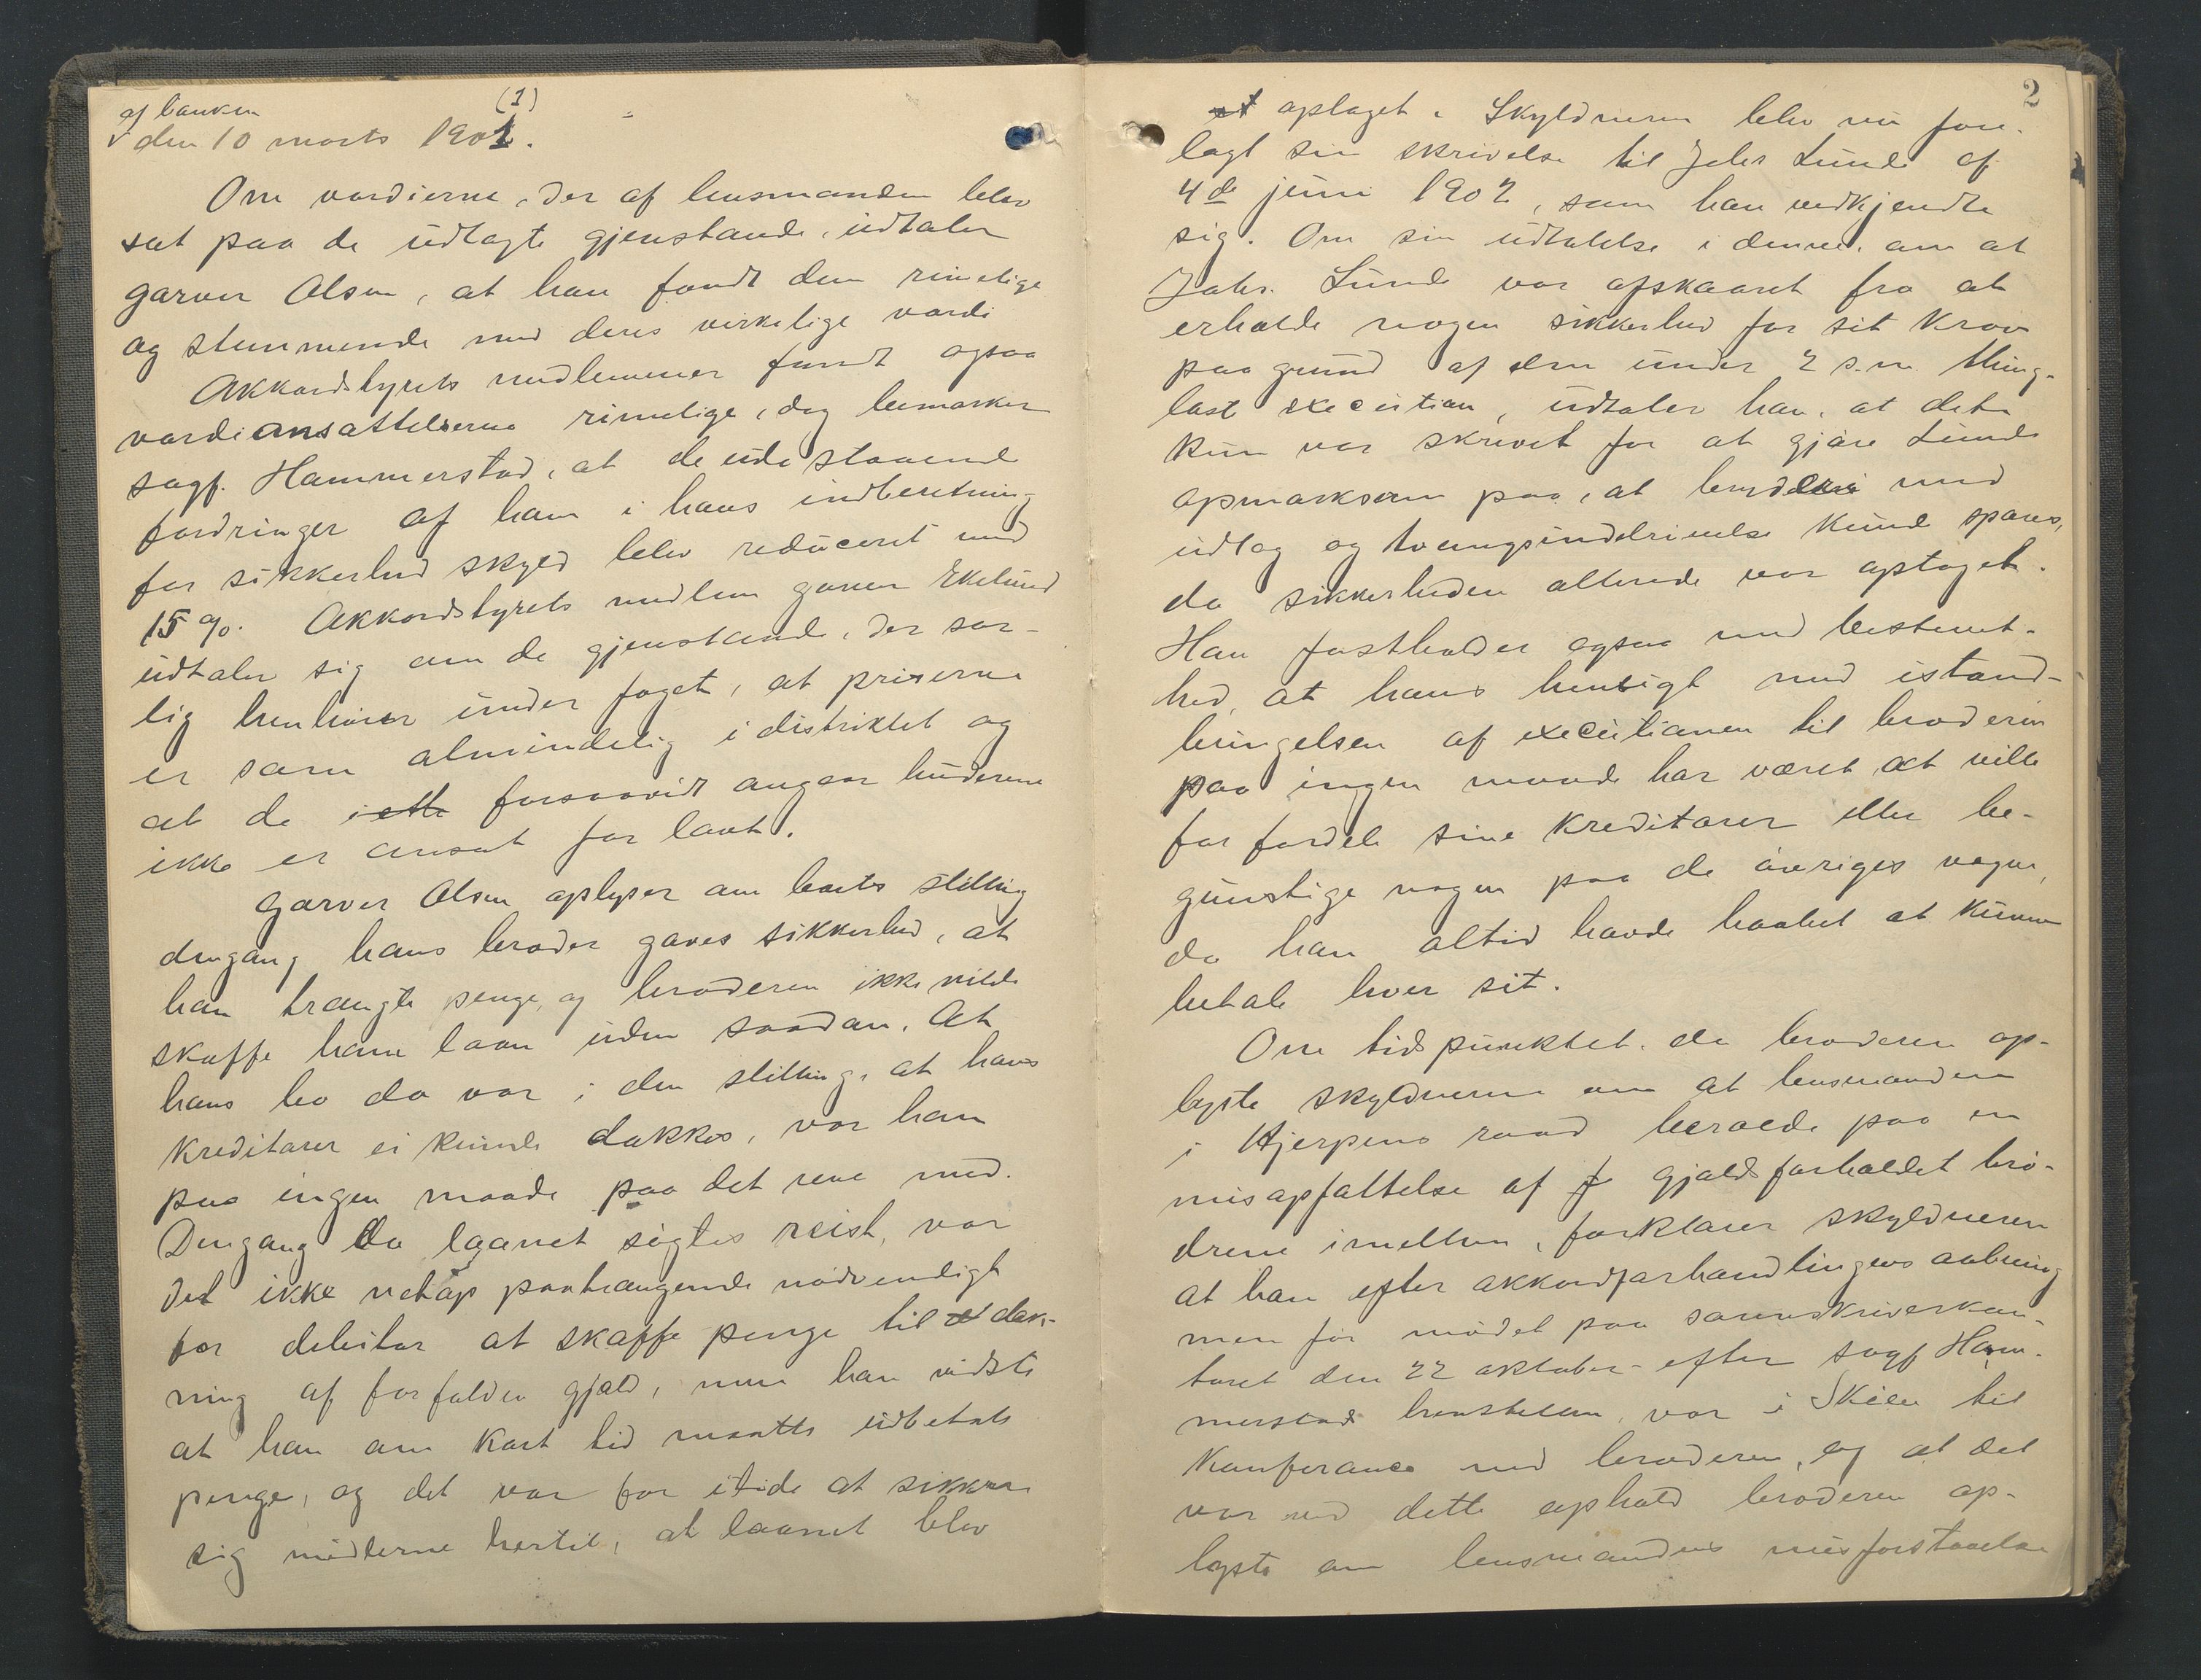 af banken
(1)
v den 10 marts 1901.
Om værdierne, der af lensmanden blev
sat paa de udlagte gjenstande, udtaler
garver Olsen, at han fandt dem rimelige
og stemmende med deres virkelige værdi
Akkordstyrets medlemmer fandt ogsaa
værdiansættelserne rimelige, dog bemærker
sagf. Hammerstad, at de udestaaende
fordringer af ham i hans indberetning
for sikkerhed skyld blev reduceret med
15 %. Akkordstyrets medlem garver Ekelund
udtaler sig om de gjenstande, der sær-
lig henhører under faget, at priserne
er som almindelig i distriktet og
at de i ette forsaavidt angaar huderne
ikke er ansat for lavt.
Garver Olsen oplyser om boets stilling
dengang hans broder gaves sikkerhed, at
han trængte penge, og broderen ikke vilde
skaffe ham laan uden saadan. At
hans bo da var i den stilling, at hans
kreditorer ei kunde dækkes, var han
paa ingen maade paa det rene med.
Dengang da laanet søgtes reist, var
det ikke netop paatrængende nødvendigt
for debitor at skaffe penge til et dæk-
ning af forfalden gjæld, men han vidste
at han om kort tid maatte udbetale
penge, og det var for itide at sikkre
sig midlerne hertil, at laanet blev
2
et optaget. Skyldneren blev nu fore-
lagt sin skrivelse til Johs Lunde af
4de juni 1902, som han vedkjendte
sig. Om sin udtalelse i denne, om at
Johs. Lunde var afskaaret fra at
erholde nogen sikkerhed for sit krav
paa grund af den under 2 s.m. thing-
læst execution, udtaler han, at det
kun var skrevet for at gjøre Lunde
opmærksom paa, at bryderi med
udlæg og tvangsinddrivelse kunde spares,
da sikkerheden allerede var optaget.
Han fastholder ogsaa med bestemt-
hed, at hans hensigt med istand-
bringelsen af executionen til broderen
paa ingen maade har været at ville
for fordele sine kreditorer eller be-
gunstige nogen paa de øvriges vegne,
da han altid havde haabet at kunne
betale hver sit.
Om tidspunktet, da broderen op-
lyste skyldneren om at lensmanden
i Hjerpens raad beroede paa en
misopfattelse af f gjældsforholdet brø-
drene imellem, forklarer skyldneren
at han efter akkordforhandlingens aabning
men før mødet paa sorenskriverkon-
toret den 22 oktober efter sagf Ham-
merstads henstillen, var i Skien til
konferance med broderen, og at det
var ved dette ophold broderen op-
lyste om lensmandens misforstaaelse